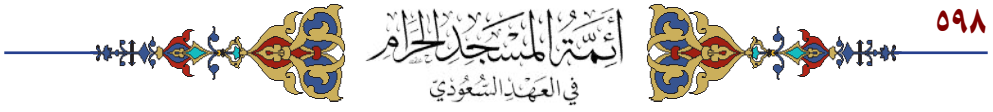 ٥٩٨
أَئِمَّةُ المَسْجِدِ الحَرَامِ
في العَهْدِ السُّعُودِيّ